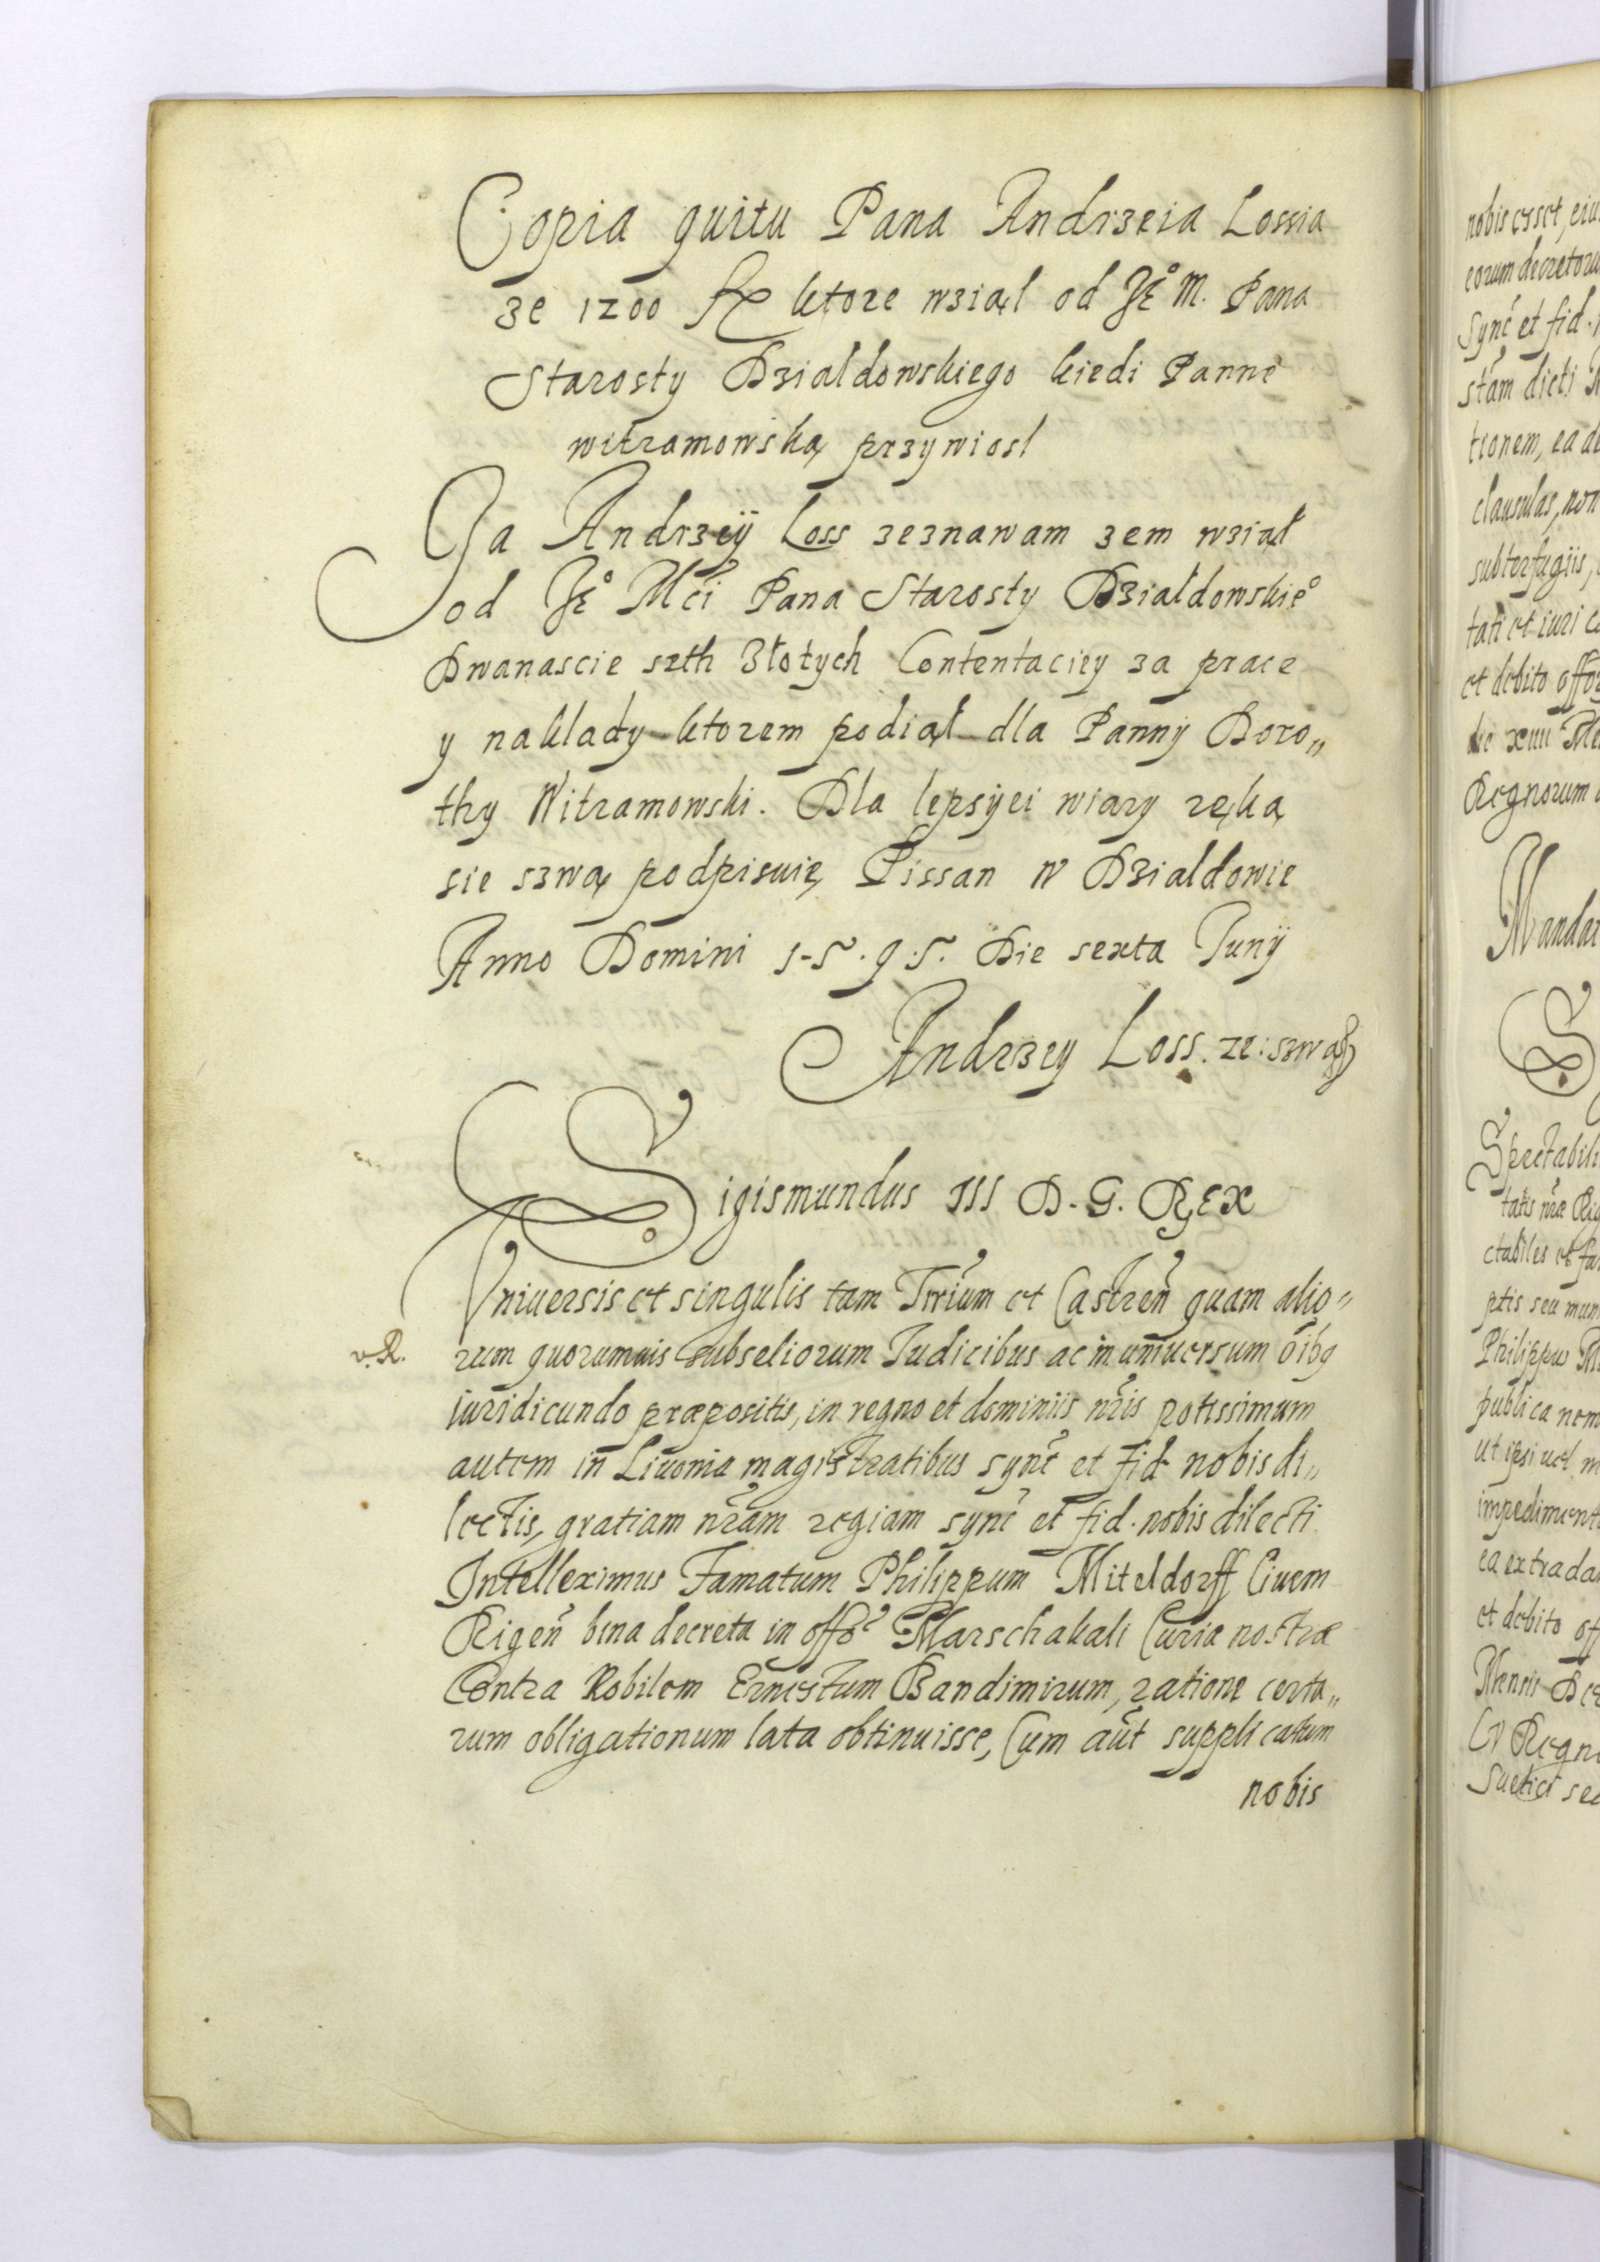 Copia quitu Pana Andrzeia Lossia
ze 1200 fl ktore wział od JE° M. Pana
Starosty Dzialdowskiego kiedi Pannę
witramowską przywiosl
Ja Andrzeÿ Loss zeznawam zem wział
od JE° Mci Pana Starosty Dzialdowskie°
Dwanascie seth Złotych Contentaciey za prace
y naklady ktorem podiął dla Panny Doro„
thy Witramowski. Dla lepsÿei wiary ręką
sie szwą podpisuię Pissan w Dzialdowie
Anno Domini 1-5.9.5. Die sexta Junÿ
Andrzey Loss. ze: szwą
Sigismundus III D. G. Rex
Vniuersis et singulis tam Trrium et Castren quam alio„
v.R.
rum quorumuis subseliorum Iudicibus ac in uniuersum oibq
iuridicundo præpositis, in regno et dominiis nris potissimum
autem in Liuonia magistratibus sync et fid nobis di„
lectis, gratiam nram regiam sync et fid. nobis dilecti
Intelleximus Famatum Philippum Miteldorff Ciuem
Rigen bina decreta in offo Marschakali Curiæ nostræ
Contra Nobilem Ernestum Bandimirum, ratione certa„
rum obligationum lata obtinuisse, Cum aut supplicatum
nobis
nobis esset, eiu
eorum decretoru
Sync et fid.
stam dicti
tionem, ea de
clausulas, non
subterfugiis,
tati et iuri
et debito
die xiiii
Regnorum
Mandat
Spectabili
tatis nræ Rig
ctabiles et fa
ptis seu mun
Philippus Mi
publica nom
ut ipsi uel
impediment
ea extradan
et debito off
Mensis Dec
Regn
Suetici